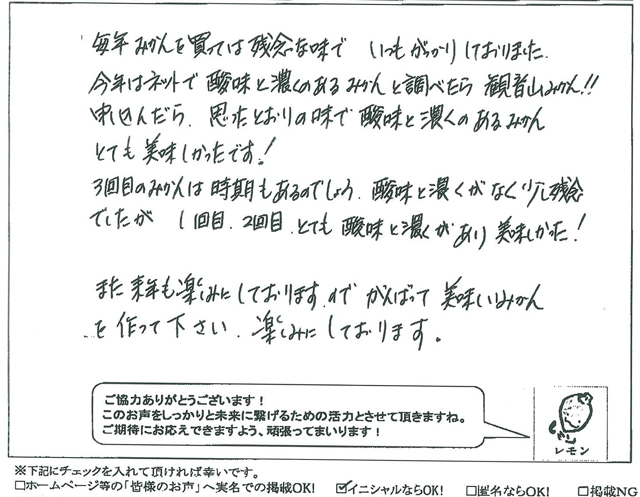 毎年みかんを買っては残念な味で いつもがっかりしておりました.
今年はネットで酸味と濃くのあるみかんと調べたら観音山みかん!!
申込んだら、思ったとおりの味で酸味と濃くのあるみかん
とても美味しかったです!
3回目のみかんは時期もあるのでしょう、酸味と濃くがなく少し残念
でしたが 1回目、2回目、とても酸味と濃くがあり美味しかった!
また来年も楽しみにしております、のでがんばって美味しいみかん
を作って下さい、楽しみにしております。
ご協力ありがとうございます!
このお声をしっかりと未来に繋げるための活力とさせて頂きますね。
ご期待にお応えできますよう、頑張ってまいります!
レモン
※下記にチェックを入れて頂ければ幸いです。
□ホームページ等の「皆様のお声」へ実名での掲載OK! ☑イニシャルならOK! □匿名ならOK! □掲載NG